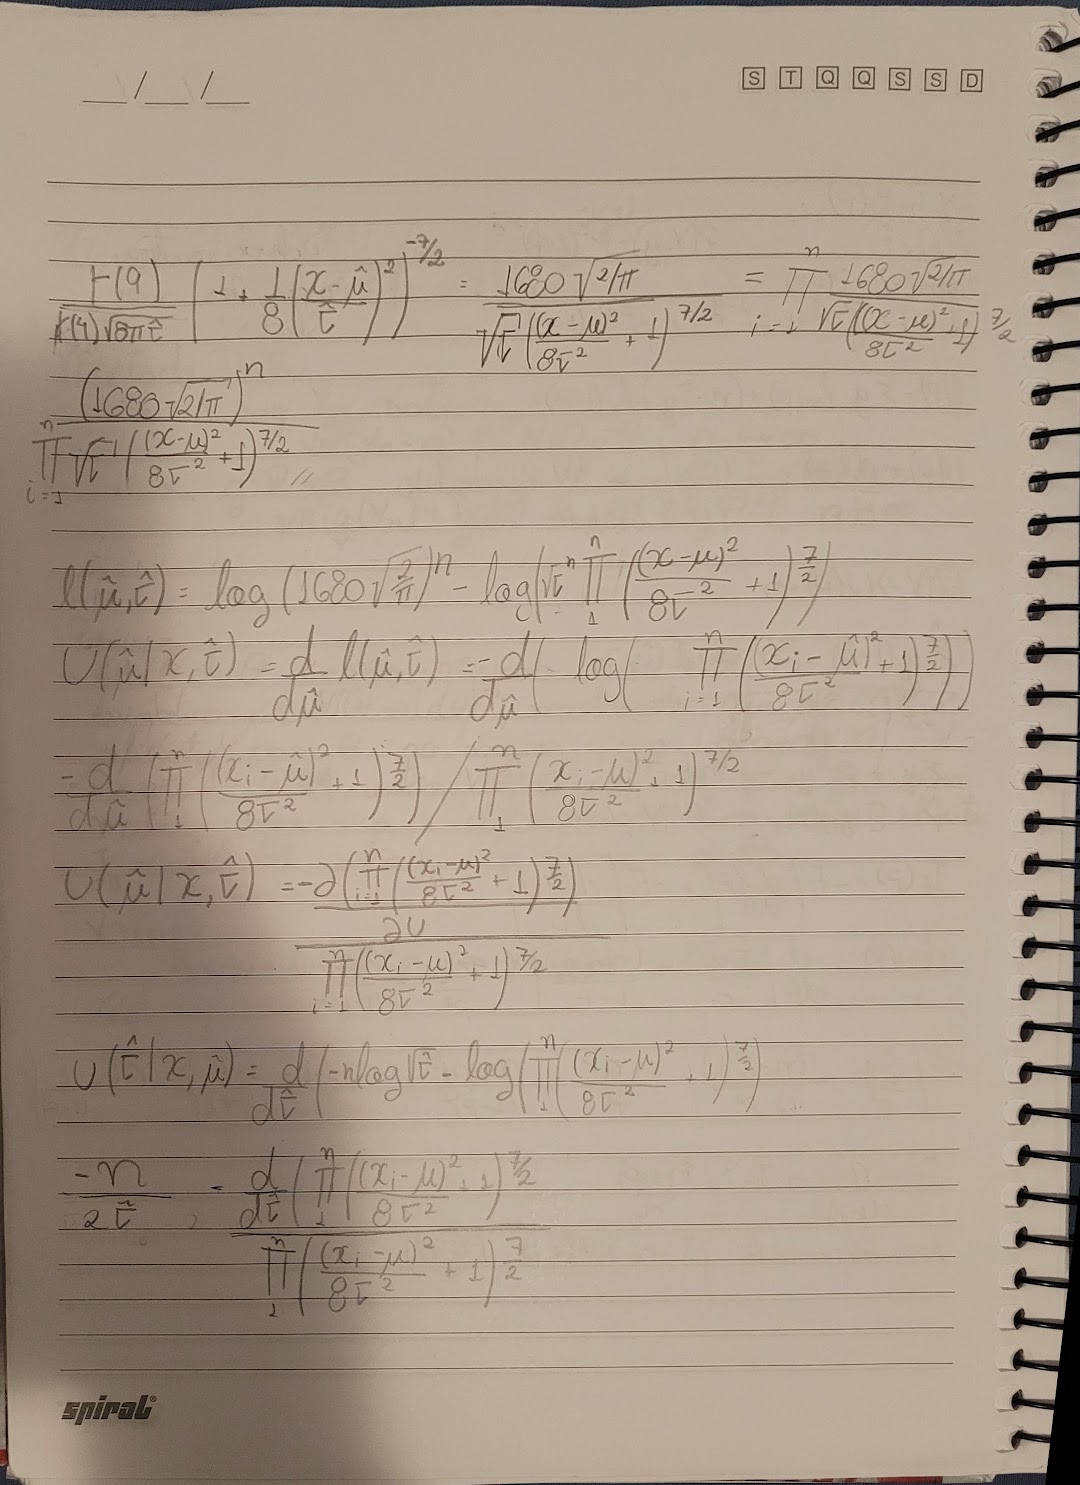 __/__/__ S T Q Q S S D
Γ(9)/(Γ(4)√(8πτ̂)) (1 + 1/8 ((x-μ̂)/τ̂)²)^(-7/2) = 1680√(2/π) / (√τ ((x-μ)²/(8τ²) + 1)^(7/2)) = ∏_{i=1}^{n} 1680√(2/π) / (√τ ((x-μ)²/(8τ²) + 1)^(7/2))
(1680√(2/π))^n / ∏_{i=1}^{n} √τ ((x-μ)²/(8τ²) + 1)^(7/2) //
l(μ̂,τ̂) = log (1680√(2/π))^n - log(√τ^n ∏_1^n ((x-μ)²/(8τ²) + 1)^(7/2))
U(μ̂|x,τ̂) = d/dμ̂ l(μ̂,τ̂) = -d/dμ̂ ( log( ∏_{i=1}^{n} ((x_i-μ̂)²/(8τ²) + 1)^(7/2)))
-d/dμ̂ (∏_1^n ((x_i-μ̂)²/(8τ²) + 1)^(7/2)) / ∏_1^n ((x_i-μ)²/(8τ²) + 1)^(7/2)
U(μ̂|x,τ̂) = -∂(∏_{i=1}^{n} ((x_i-μ)²/(8τ²) + 1)^(7/2))/∂U / ∏_{i=1}^{n} ((x_i-μ)²/(8τ²) + 1)^(7/2)
U(τ̂|x,μ̂) = d/dτ̂ (-n log√τ̂ - log(∏_1^n ((x_i-μ)²/(8τ²) + 1)^(7/2))
-n/(2τ̂) - d/dτ̂ (∏_1^n ((x_i-μ)²/(8τ²) + 1)^(7/2) / ∏_1^n ((x_i-μ)²/(8τ²) + 1)^(7/2)
spiral®